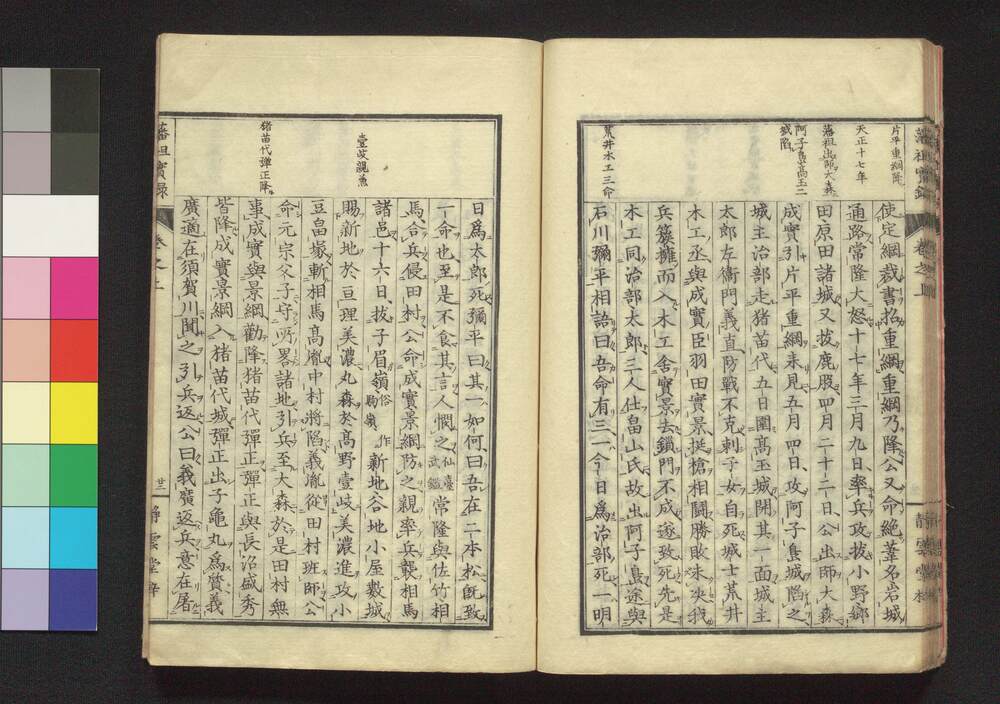 藩祖實錄
卷之上
靜雲堂梓
片平重綱降
天正十七年
藩祖出師大森
阿子島高玉二
城陷
荒井木工三命
使定綱裁書招重綱重綱乃降公又命絶葦名岩城
通路常隆大怒十七年三月九日率兵攻拔小野鄉
田原田諸城又拔鹿股四月二十二日公出師大森
成實引片平重綱来見五月四日攻阿子島城陷之
城主治部走猪苗代五日圍高玉城開其一面城主
太郎左衛門義直防戰不克刺子女自死城士荒井
木工丞與成實臣羽田實景挺槍相鬪勝敗未决我
兵簇擁而入木工舍實景去鎖門不成遂致死先是
木工同治部太郎三人仕畠山氏故出阿子島途與
石川彌平相語曰吾命有三一今日為治部死一明
壹岐諷薫
猪苗代彈正降
日爲太郎死彌平曰其一如何曰吾在二本松既致
一命也至是不食其言人憫之仙臺武鑑常隆與佐竹相
馬合兵侵田村公命成實景綱防之親率兵襲相馬
諸邑十六日拔子眉嶺俗作駒嶺新地谷地小屋數城
賜新地於亘理美濃丸森於高野壹岐美濃進攻小
豆畠塚斬相馬髙胤中村將陷義胤從田村班師公
命元宗父子守所畧諸地引兵至大森於是田村無
事成實與景綱勸降猪苗代彈正彈正與長沼盛秀
皆降成實景綱入猪苗代城彈正出子龜丸爲質義
廣適在須賀川聞之引兵返公曰義廣返兵意在屠
藩祖實録
卷之上
廿三
靜雲堂梓